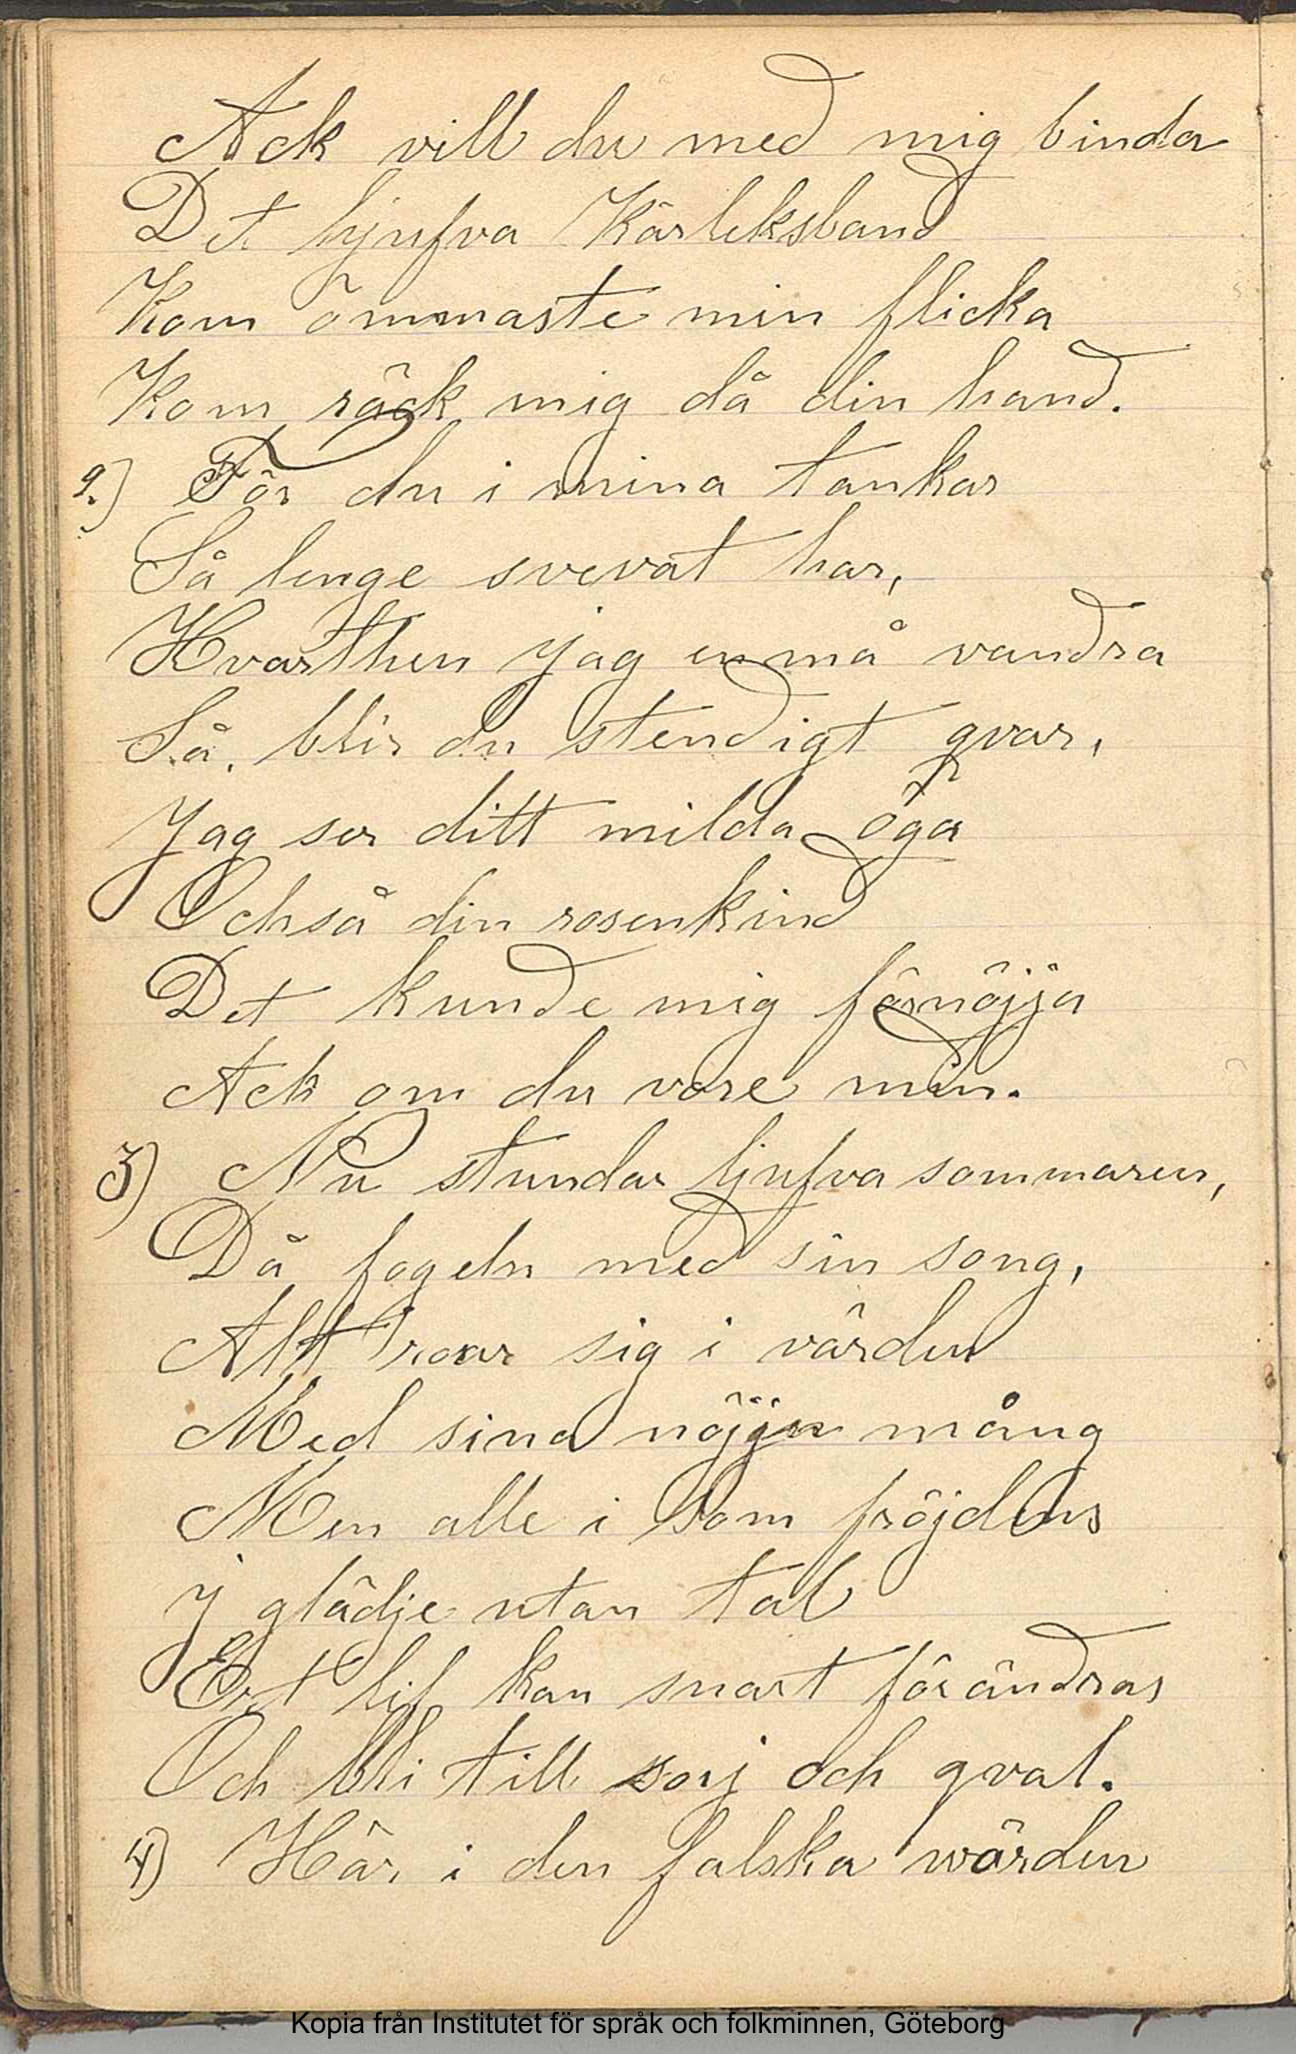 Ack vill du med mig binda
Det ljufva Kärleksband
Kom ömmaste min flicka
Kom räck mig då din hand.
2.) För du i mina tankar
Så lenge svevat har,
Hvarthen jag en må vandra
Så, blir du stendigt qvar,
Jag ser ditt milda öga
Också din rosenkind
Det kunde mig förnöjja
Ack om du vore min.
3) Nu stundar ljufva sommaren,
Då fogeln med sin song,
Allt roar sig i värden
Med sina nöjjen mång
Men alle i som fröjdens
J glädje utan tal
Ert lif kan snart förändras
Och bli till sorj och qval.
4) Här i den falska wärden
Kopia från Institutet för språk och folkminnen, Göteborg